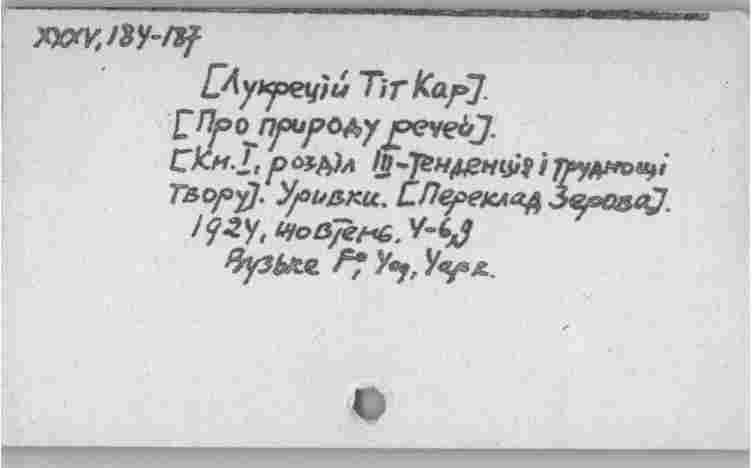 XXXIV, 184-187
[Лукрецій Тіт Кар].
[Про природу речей].
[Кн. I, розділ III-Тенденція і труднощі
твору]. Уривки. [Переклад Зерова].
1924, жовтень. 4-6,9
Вузьке F°, 4од, 4арк.